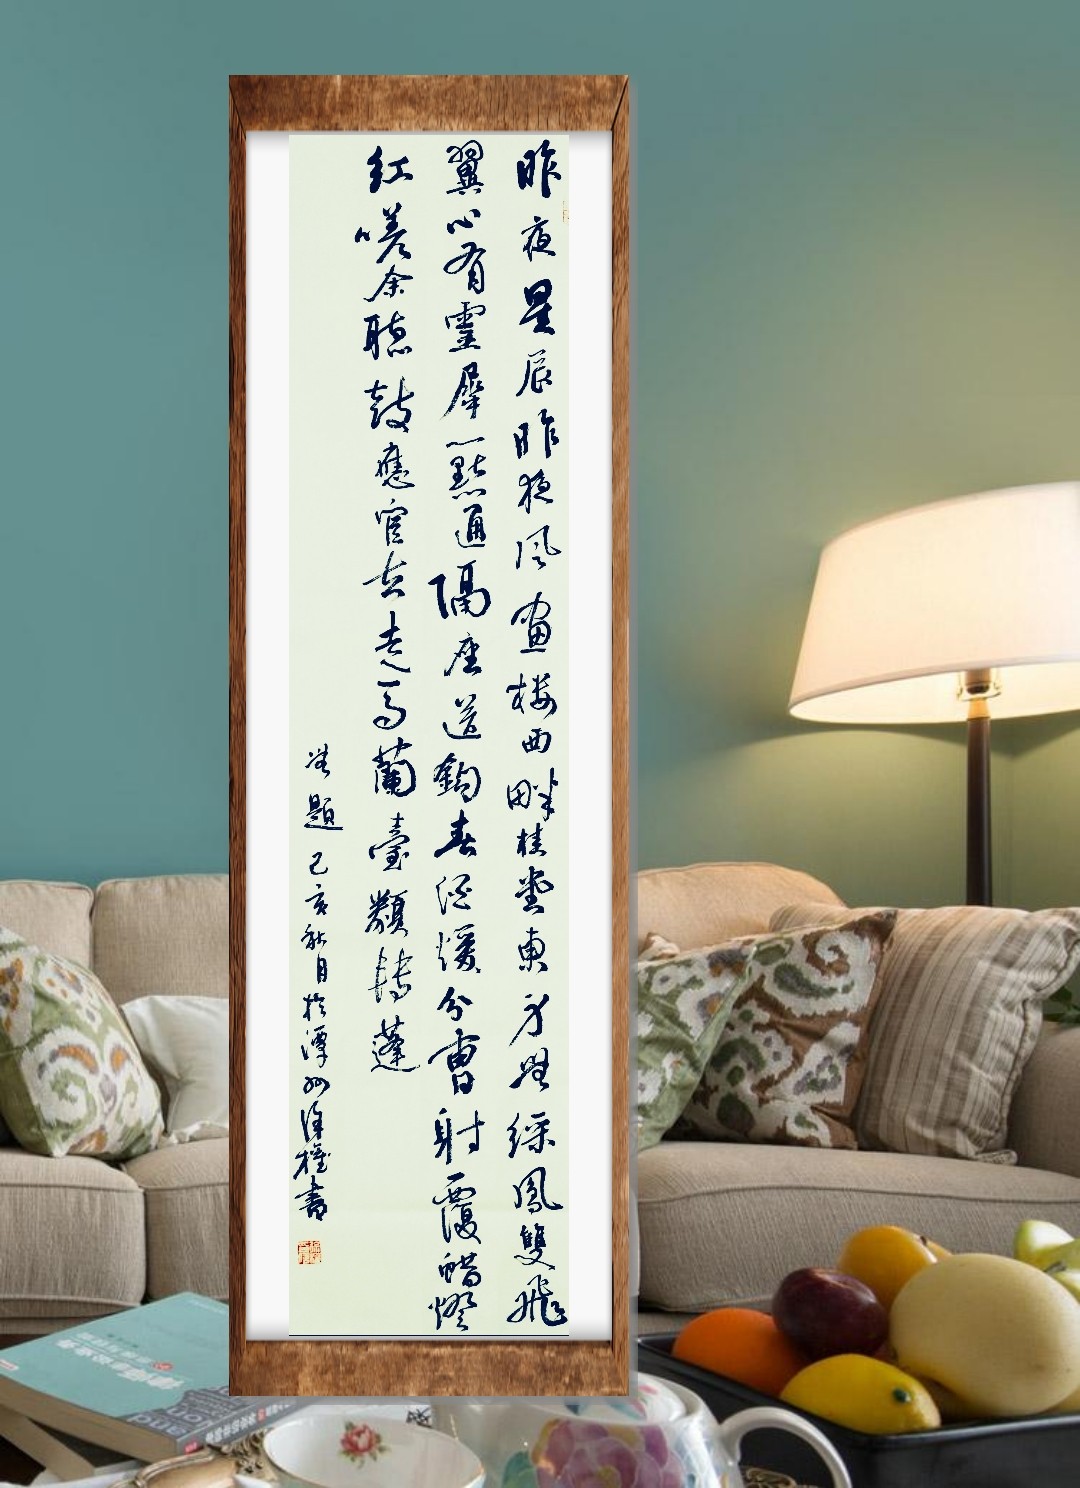 昨夜星辰昨夜風畫楼西畔桂堂東身無綵鳳雙飛
翼心有靈犀一點通隔座送鈎春酒煖分曹射覆蜡燈
紅嗟余聽鼓應官去走馬蘭臺類轉蓬
無題 己亥秋月於潭州 書